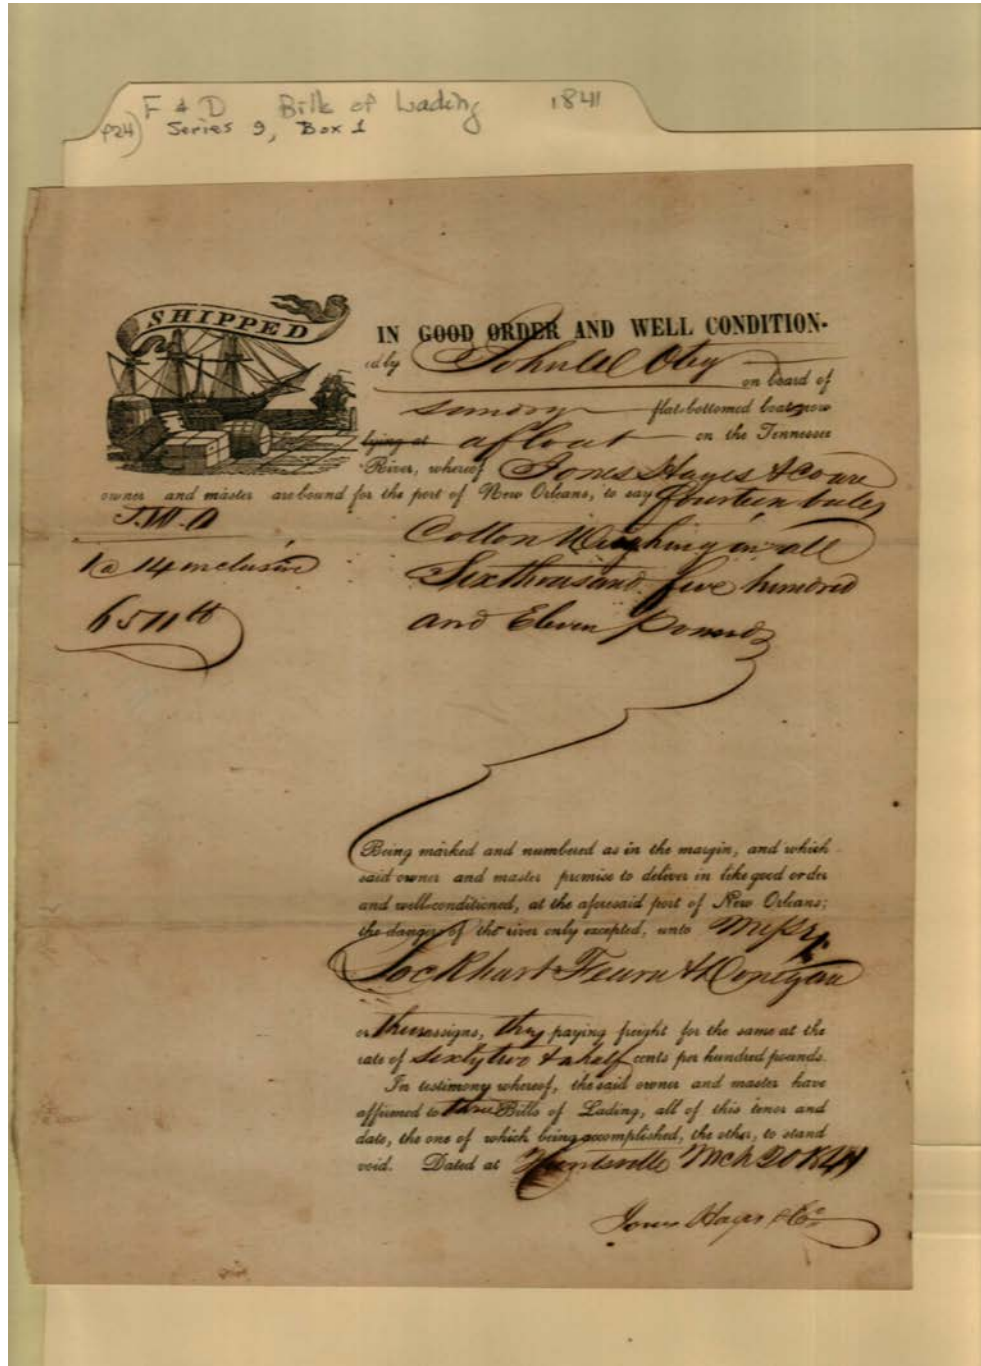 F & D Bills of Lading 1841
p24) Series 9, Box 1
SHIPPED
IN GOOD ORDER AND WELL CONDITION-
ed by John W Otey
on board of
sundry flat-bottomed boats now
lying at afloat on the Tennessee
River, whereof Jones Hayes & Co are
owner and master are bound for the port of New Orleans, to say fourteen bales
J.W.O
Cotton Weighing in all
1 @ 14 inclusive
Six thousand five hundred
6511 lb
and Eleven Pounds
Being marked and numbered as in the margin, and which
said owner and master promise to deliver in like good order
and well-conditioned, at the aforesaid port of New Orleans;
the dangers of the river only excepted, unto Messrs
Lockhart Fearn & Donegan
or their assigns, they paying freight for the same at the
rate of sixty two & a half cents per hundred pounds.
In testimony whereof, the said owner and master have
affirmed to three Bills of Lading, all of this tenor and
date, the one of which being accomplished, the other, to stand
void. Dated at Huntsville Mch 20 1841
Jones Hayes & Co